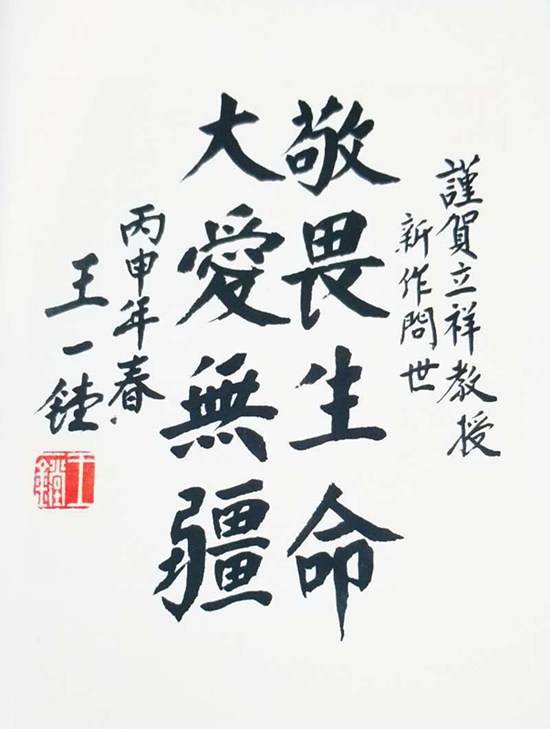 謹賀立祥教授
新作問世
敬畏生命
大愛無疆
丙申年春
王一鏜